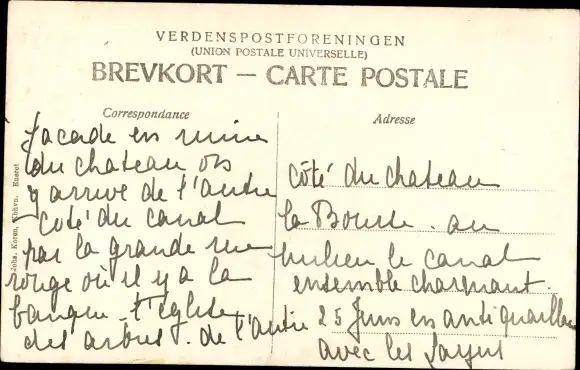 VERDENSPOSTFORENINGEN
(UNION POSTALE UNIVERSELLE)
BREVKORT — CARTE POSTALE
Correspondance
Adresse
facade en ruine
du chateau on
y arrive de l'autre
coté du canal
par la grande rue
rouge où il y a la
banque - l'eglise
des arbres. de l'autre
côté du chateau
la Bourse. au
milieu le canal
ensemble charmant.
25 Juin en antiquailles
avec les
Joha. Koren, Kbhvn. Eneret